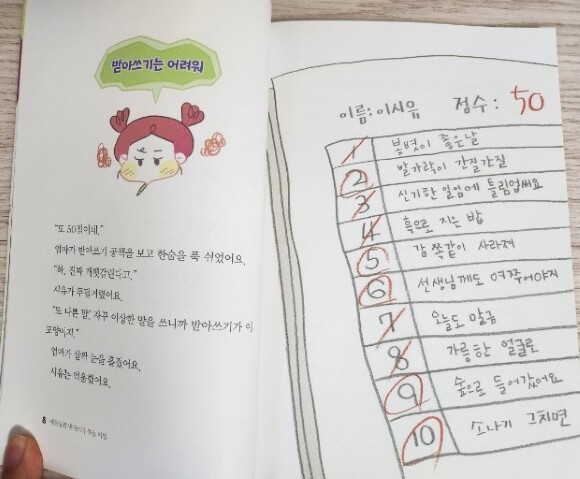 받아쓰기는 어려워
"또 50점이네."
엄마가 받아쓰기 공책을 보고 한숨을 푹 쉬었어요.
"하, 진짜 개헷갈린다고."
시유가 투덜거렸어요.
"또 나쁜 말! 자꾸 이상한 말을 쓰니까 받아쓰기가 이
모양이지."
엄마가 살짝 눈을 흘겼어요.
시유는 억울했어요.
8
이름: 이시유 점수: 50
1 봄볏이 좋은날
2 발가락이 간질간질
3 신기한 일임에 틀림업써요
4 흑으로 지은 밥
5 감쪽같이 사라져
6 선생님께도 여쭈어야지
7 오늘도 말금
8 가름한 얼굴로
9 숲으로 들어갔어요
10 소나기 그치면